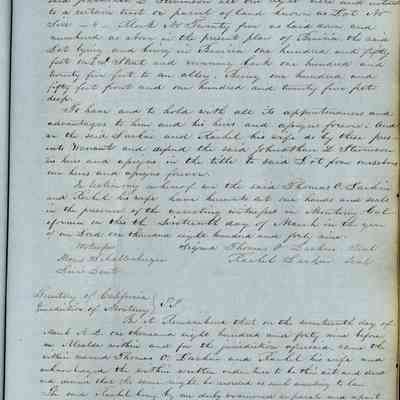 said Jonathan D. Stevenson all our right title and interest
to a certain lot or parcel of land known as Lot No
Six in Block No Twenty as laid down and
numbered as above in the present plan of Benicia the said
Lot lying and being in Benicia one hundred and fifty
feet on I Street and running back one hundred and
twenty five feet to an alley. Being one hundred and
fifty feet front and one hundred and twenty five feet
deep.
To have and to hold with all its appurtenances and
advantages to him and his heirs and assigns forever. And
we the said Larkin and Rachel his wife do by these presents
Warrant and defend the said Jonathan D. Stevenson
his heirs and assigns in the title to said Lot from ourselves
our heirs and assigns forever.
In testimony whereof we the said Thomas O. Larkin
and Rachel his wife have hereunto set our hands and seals
in the presence of the subscribing witnesses in Monterey Cal
ifornia on this the Seventeenth day of March in the year
of our Lord one thousand eight hundred and forty nine.
Witnesses Signed Thomas O. Larkin Seal
Moses Schallenberger Rachel Larkin Seal
Territory of California
Jurisdiction of Monterey } S.S.
Be it Remembered that on the seventeenth day of
March A.D. one thousand eight hundred and forty nine before
me Alcalde within and for the jurisdiction aforesaid came the
within named Thomas O. Larkin and Rachel his wife and
acknowledged the within written indenture to be their act and deed
and desired that the same might be recorded as such according to law.
The said Rachel being by me duly examined separate and apart